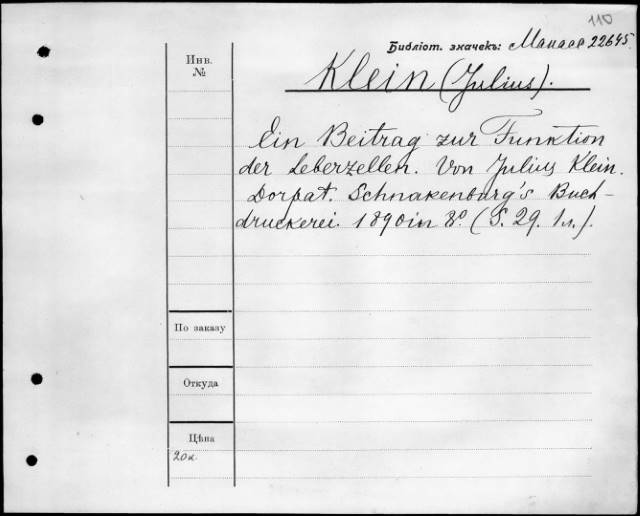 110
Библіот. значекъ: Манасе 22645
Инв. №
Klein (Julius).
Ein Beitrag zur Funktion
der Leberzellen. Von Julius Klein.
Dorpat. Schnakenburg's Buch-
druckerei. 1890 in 8º (S. 29. 1 л.).
По заказу
Откуда
Цѣна
20к